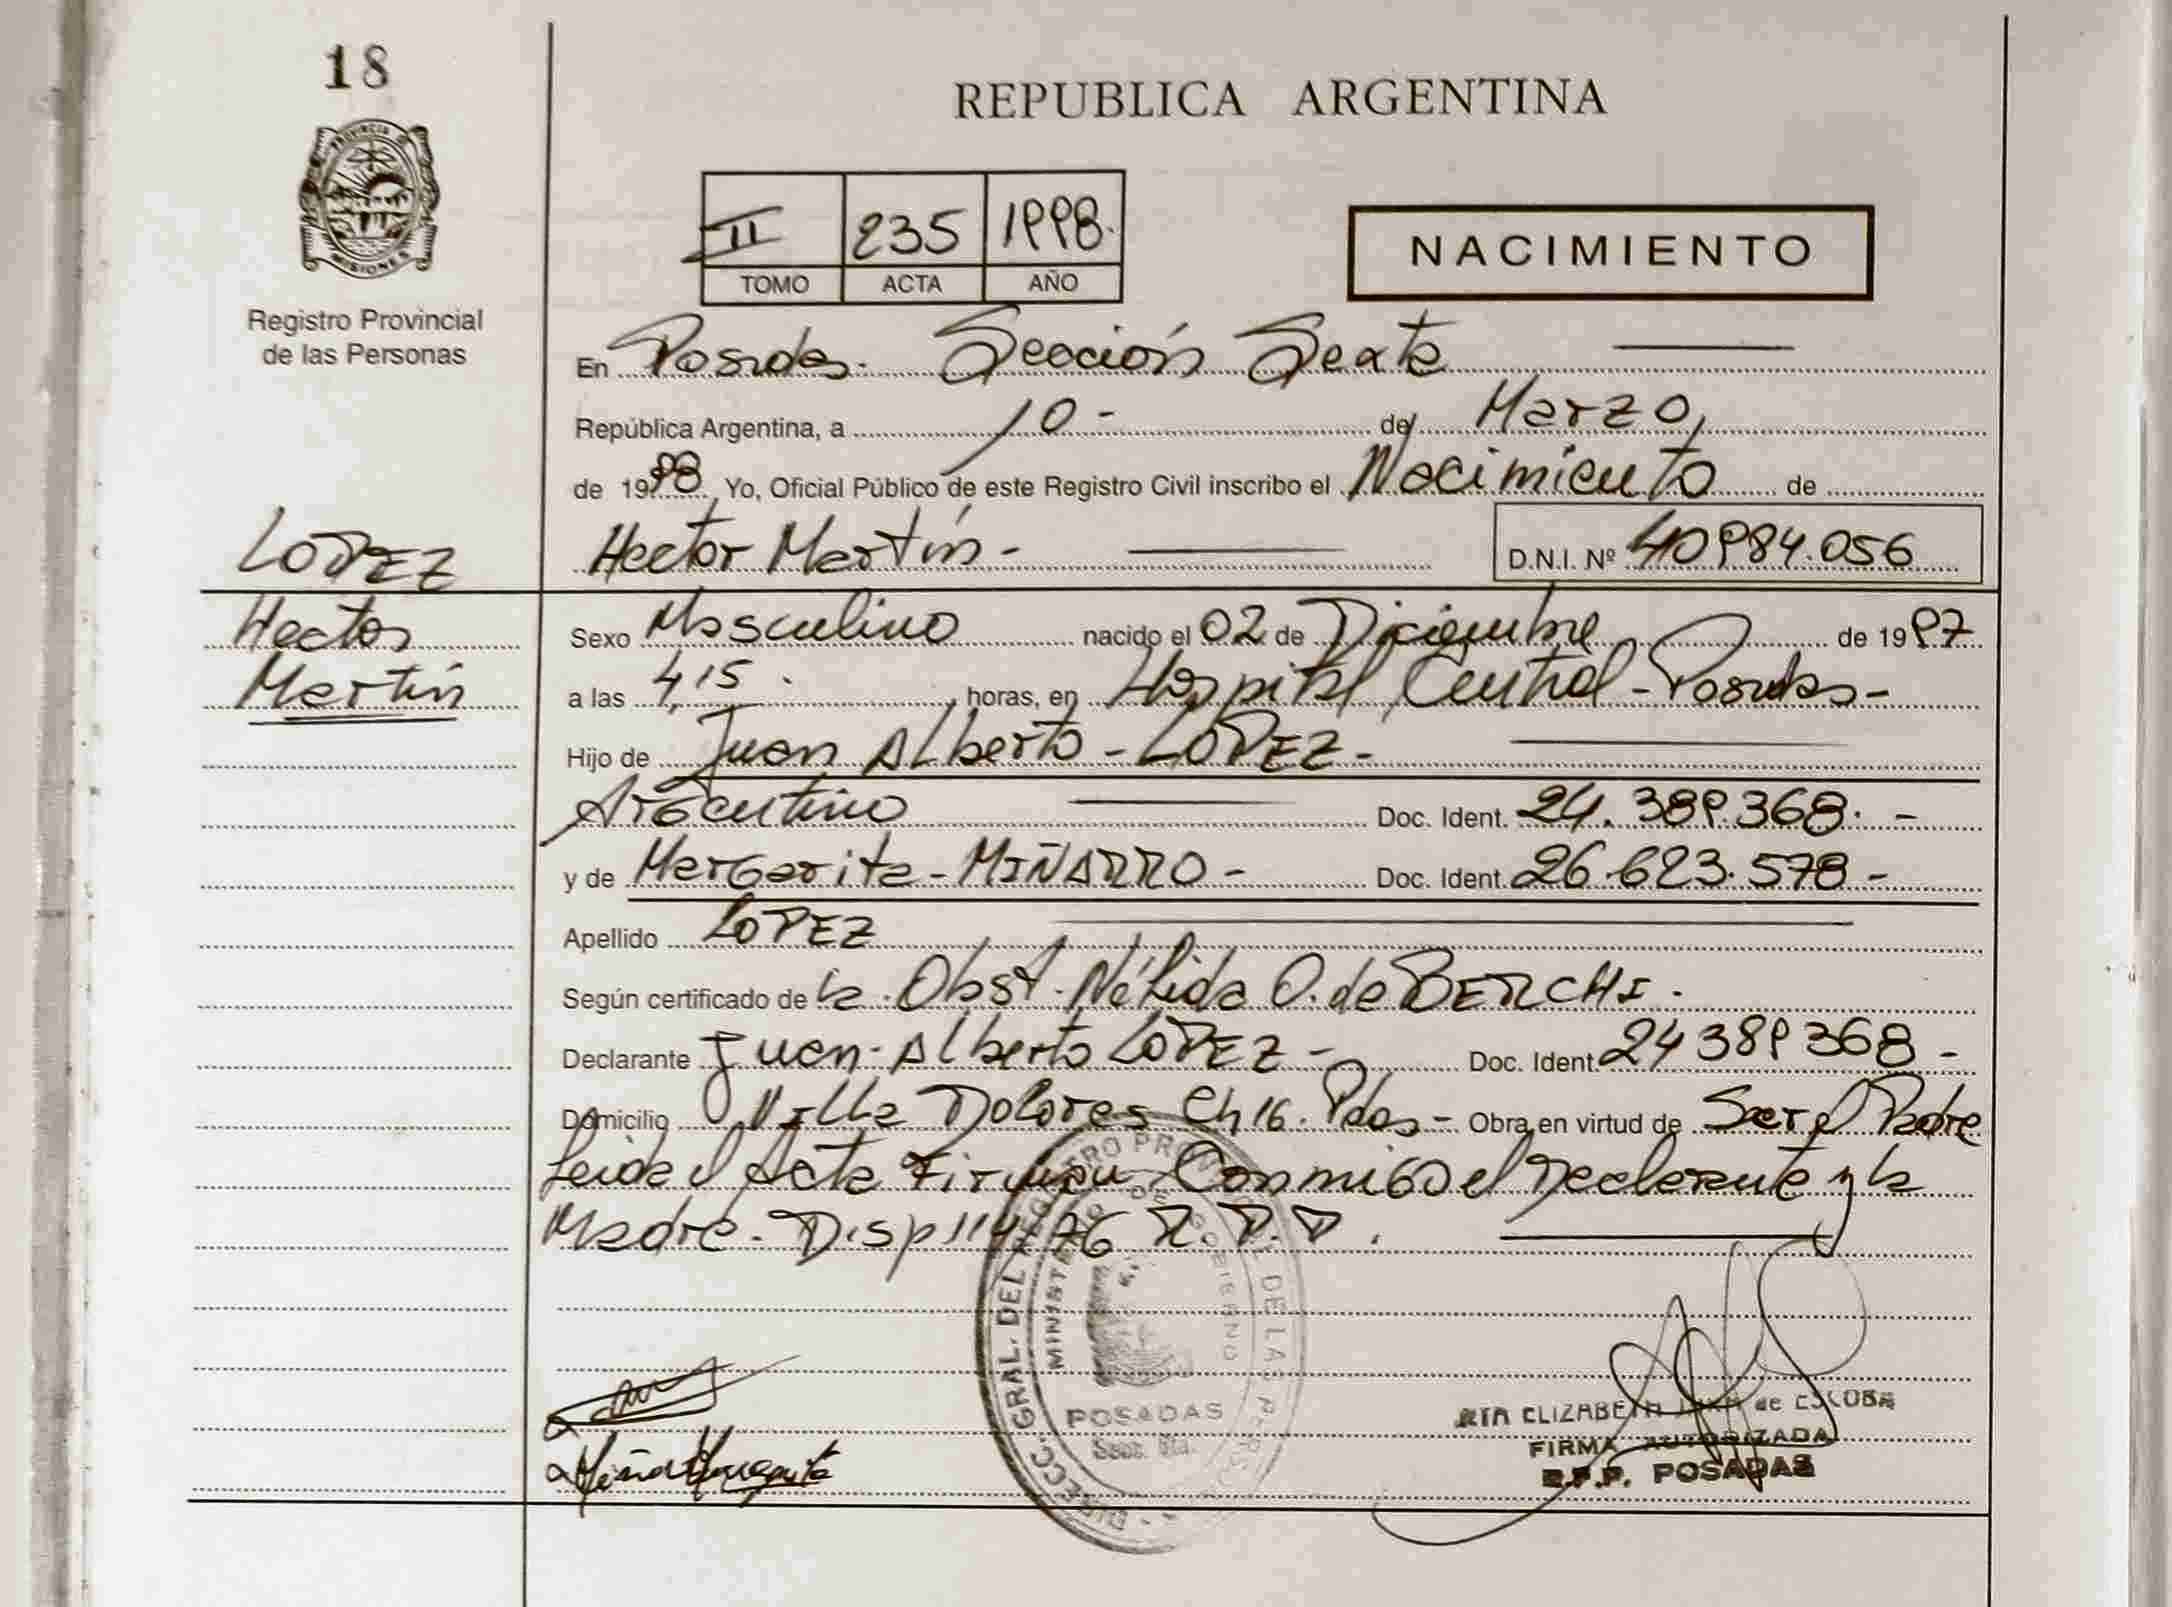 18
REPUBLICA ARGENTINA
PROVINCIA DE
MISIONES
Registro Provincial
de las Personas
II 235 1998.
TOMO ACTA AÑO
NACIMIENTO
En Posadas. Sección Sexta
República Argentina, a 10 - de Marzo,
de 1998 Yo, Oficial Público de este Registro Civil inscribo el Nacimiento de
LOPEZ
Hector Martín -
D.N.I. Nº 40984.056
Hector
Martín
Sexo Masculino nacido el 02 de Diciembre de 1997
a las 4,15. horas, en Hospital Central - Posadas -
Hijo de Juan Alberto - LOPEZ -
Argentino Doc. Ident. 24.389.368. -
y de Margarita - MIÑARRO - Doc. Ident. 26.623.578 -
Apellido LOPEZ
Según certificado de la. Obst. Nélida O. de BERCHI.
Declarante Juan - Alberto LOPEZ - Doc. Ident. 24 389 368 -
Domicilio Villa Dolores Ch 16. Pdas - Obra en virtud de Ser el Padre
Leida el Acta Firman Conmigo el Declarante y la
Madre. Disp 114/76 R.P.P.
DIRECC. GRAL. DEL REGISTRO PROVINCIAL DE LAS PERSONAS
MINISTERIO DE GOBIERNO
POSADAS
Secc. 6ta.
Miñarro Margarita
ELIZABETH de ESCOBA
FIRMA AUTORIZADA
R.P.P. POSADAS